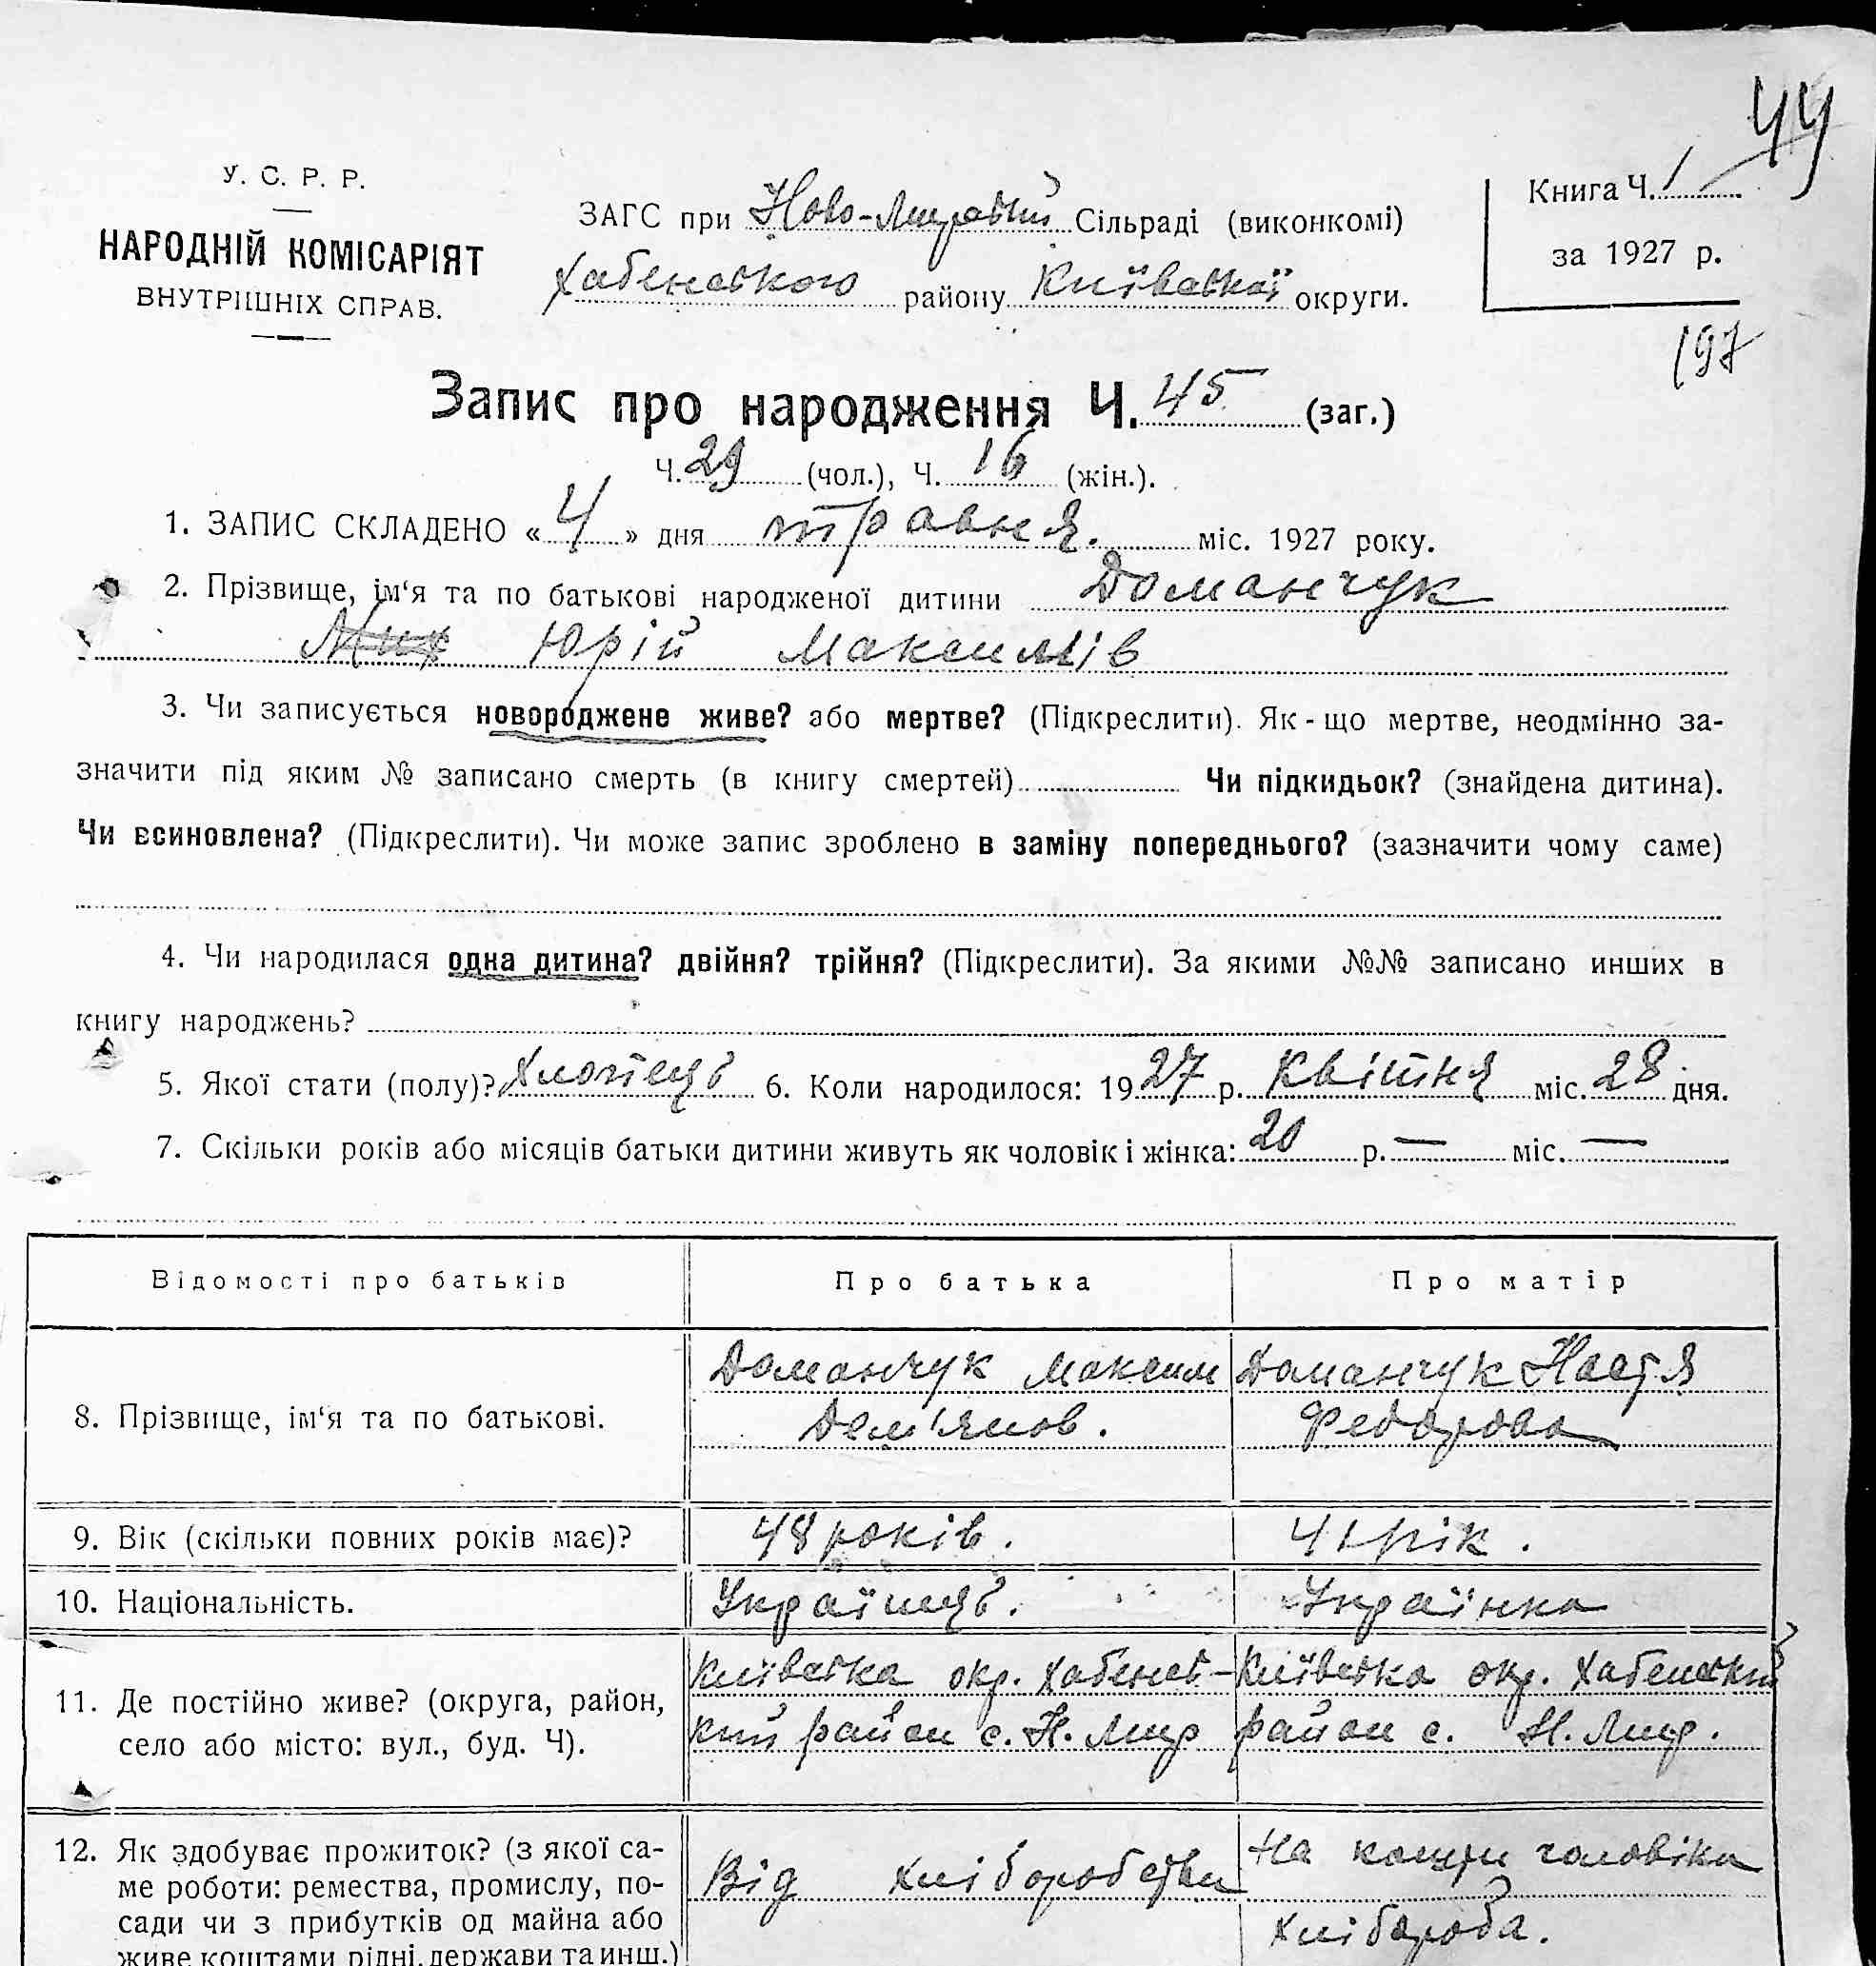 44
У. С. Р. Р.
НАРОДНІЙ КОМІСАРІЯТ
ВНУТРІШНІХ СПРАВ.
ЗАГС при Ново-Мирській Сільраді (виконкомі)
Хабенського району Київської округи.
Книга Ч. 1
за 1927 р.
197
Запис про народження Ч. 45 (заг.)
Ч. 29 (чол.), Ч. 16 (жін.).
1. ЗАПИС СКЛАДЕНО « 4 » дня травня. міс. 1927 року.
2. Прізвище, ім‘я та по батькові народженої дитини Доманчук
Мих Юрій Максимів
3. Чи записується новороджене живе? або мертве? (Підкреслити). Як-що мертве, неодмінно за-
значити під яким № записано смерть (в книгу смертей) Чи підкидьок? (знайдена дитина).
Чи всиновлена? (Підкреслити). Чи може запис зроблено в заміну попереднього? (зазначити чому саме)
4. Чи народилася одна дитина? двійня? трійня? (Підкреслити). За якими №№ записано инших в
книгу народжень?
5. Якої стати (полу)? Хлопець 6. Коли народилося: 1927 р. Квітня міс. 28 дня.
7. Скільки років або місяців батьки дитини живуть як чоловік і жінка: 20 р. — міс. —
Відомості про батьків Про батька Про матір
8. Прізвище, ім‘я та по батькові.
Доманчук Максим
Дем'янов.
Доманчук Настя
Федорова
9. Вік (скільки повних років має)? 48 років. 41 рік.
10. Національність. Українець. Українка
11. Де постійно живе? (округа, район,
село або місто: вул., буд. Ч).
Київська окр. Хабенсь-
кий район с. Н. Мир
Київська окр. Хабенський
район с. Н. Мир.
12. Як здобуває прожиток? (з якої са-
ме роботи: ремества, промислу, по-
сади чи з прибутків од майна або
живе коштами рідні, держави та инш.)
Від хліборобства
На кошти чоловіка
хлібороба.